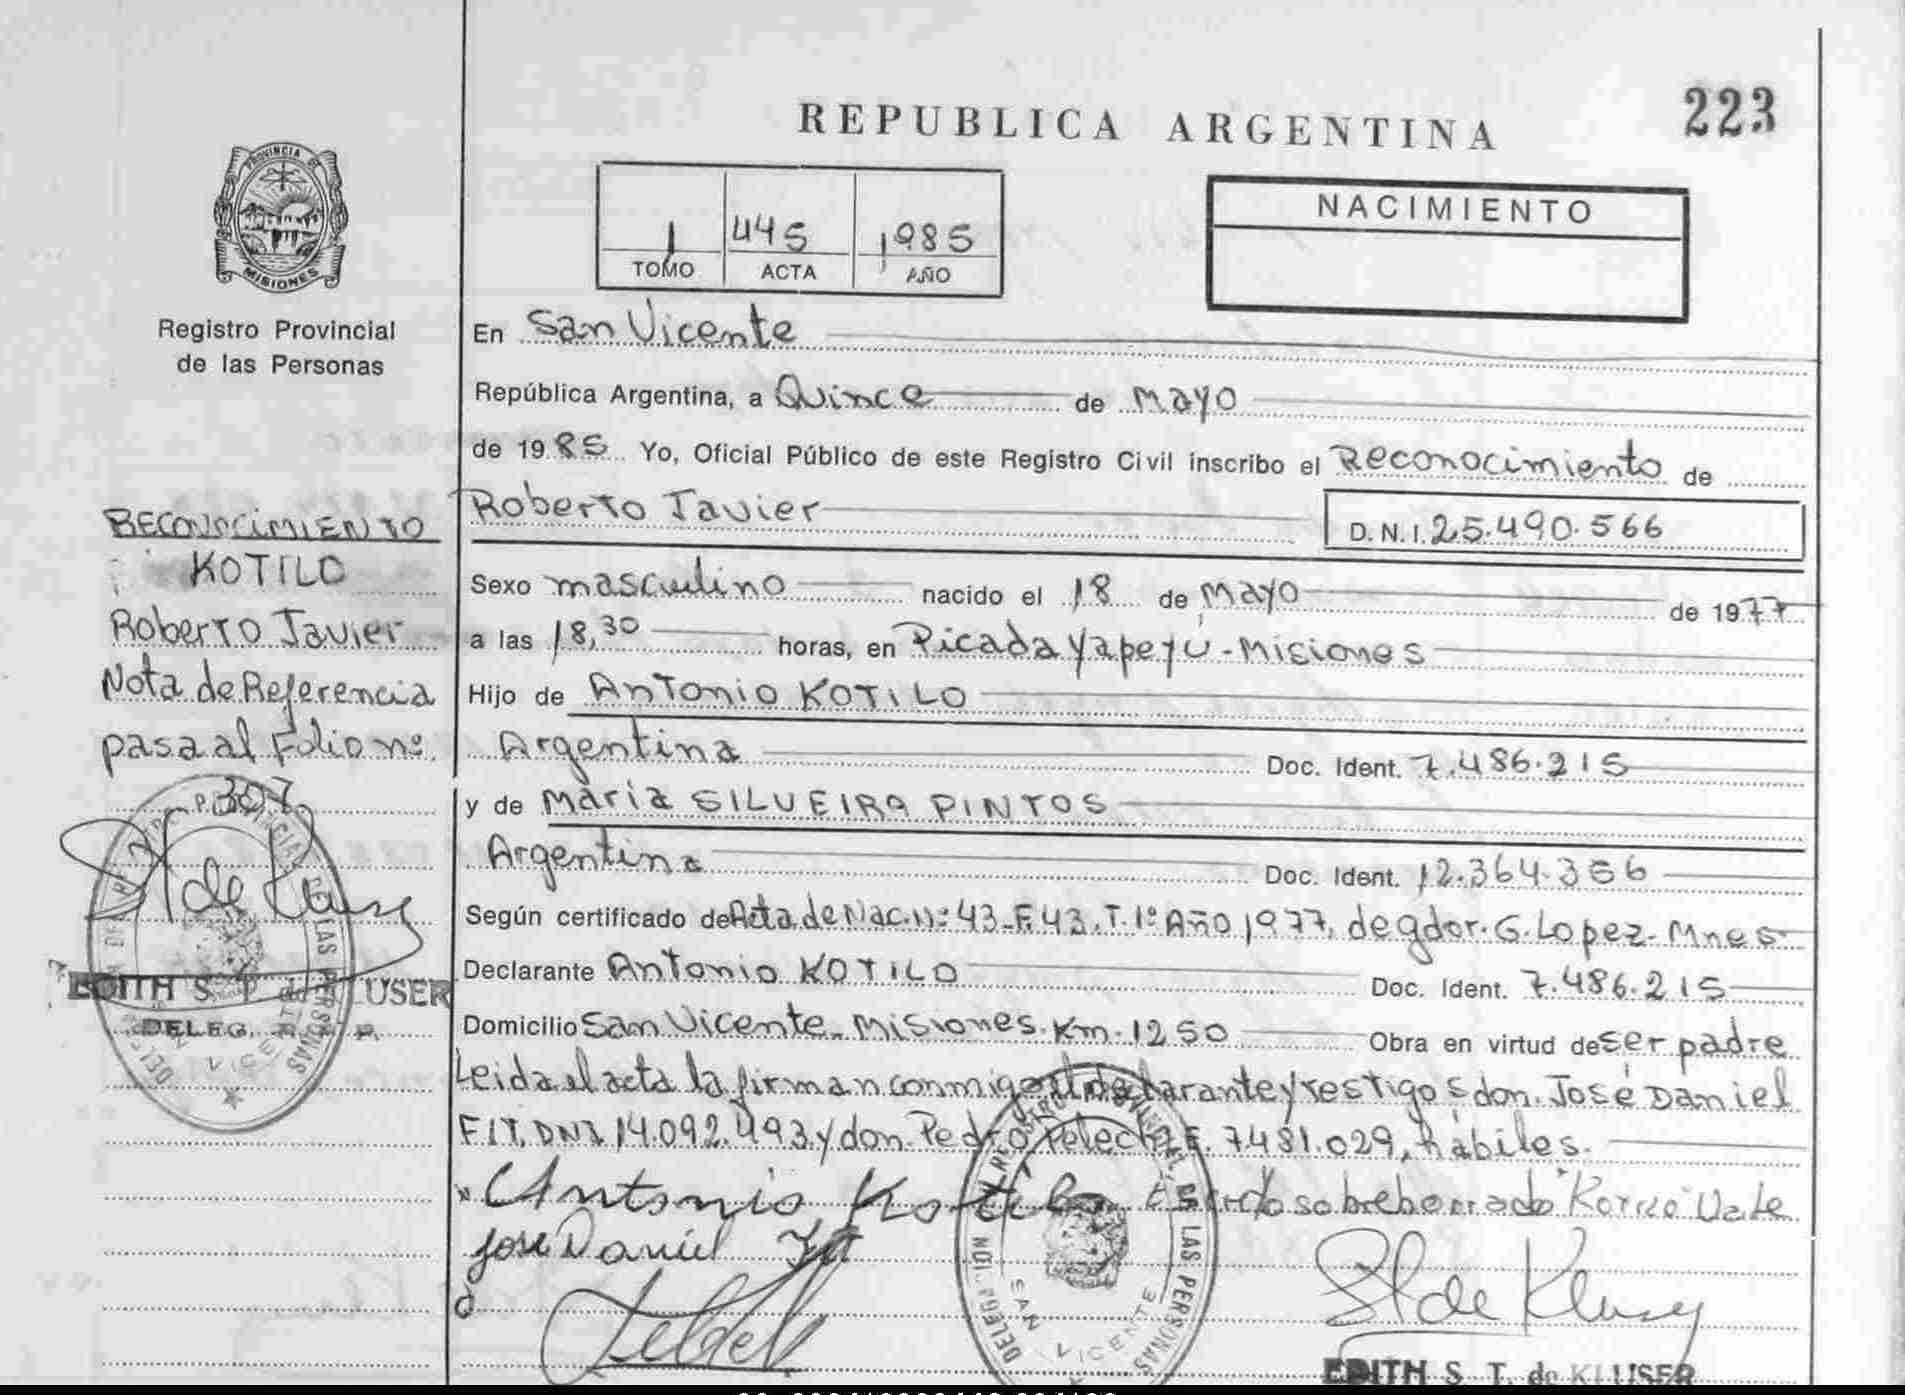 REPUBLICA ARGENTINA
223
PROVINCIA DE
MISIONES
Registro Provincial
de las Personas
1 445 1985
TOMO ACTA AÑO
NACIMIENTO
En San Vicente
República Argentina, a Quince de Mayo
de 1985 Yo, Oficial Público de este Registro Civil inscribo el Reconocimiento de
Roberto Javier D.N.I. 25.490.566
Sexo masculino nacido el 18 de Mayo de 1977
a las 18,30 horas, en Picada Yapeyú - Misiones
Hijo de Antonio KOTILO
Argentina Doc. Ident. 7.486.215
y de Maria SILVEIRA PINTOS
Argentina Doc. Ident. 12.364.356
Según certificado de Acta de Nac. Nº 43 - F. 43. T. 1º Año 1977, de gdor. G. Lopez - Mnes
Declarante Antonio KOTILO Doc. Ident. 7.486.215
Domicilio San Vicente - Misiones. Km. 1250 Obra en virtud de ser padre
Leida el acta la firman conmigo el declarante y testigos don José Daniel
FIT, DNI 14.092.493 y don Pedro 7481.029, hábiles.
Antonio Kotilo sobreborrado Vale
José Daniel Fit
S T de Kluser
EDITH S. T. de KLUSER
RECONOCIMIENTO
KOTILO
Roberto Javier
Nota de Referencia
pasa al Folio nº
307
S T de Kluser
EDITH S. T. de KLUSER
DELEG. R. P.
LAS PERSONAS
SAN VICENTE
LAS PERSONAS
SAN VICENTE